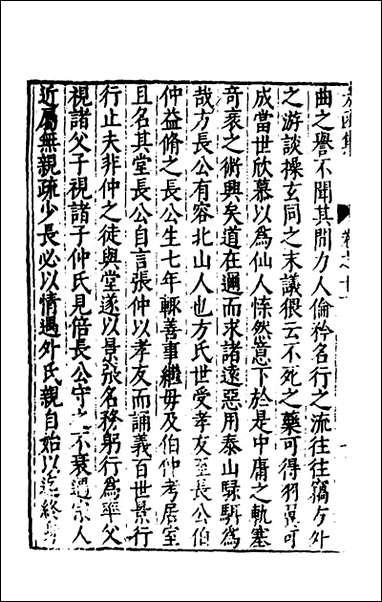 曲之譽不聞其閒力人倫矜名行之流往往竊方外
之游談操玄同之末議猥云不死之藥可得羽翼可
成當世欣慕以為仙人悚然意下於是中庸之軌塞
奇衺之術興矣道在邇而求諸遠惡用泰山騄駬為
哉方長公有容北山人也方氏世受孝友至長公伯
仲益脩之長公生七年輒善事繼母及伯仲考居室
且名其堂長公自言張仲以孝友而誦義百世景行
行止夫非仲之徒與堂遂以景張名務躬行為率父
視諸父子視諸子仲氏見倍長公守之不衰遇宗人
近屬無親疏少長必以情遇外氏親自始以迄終身